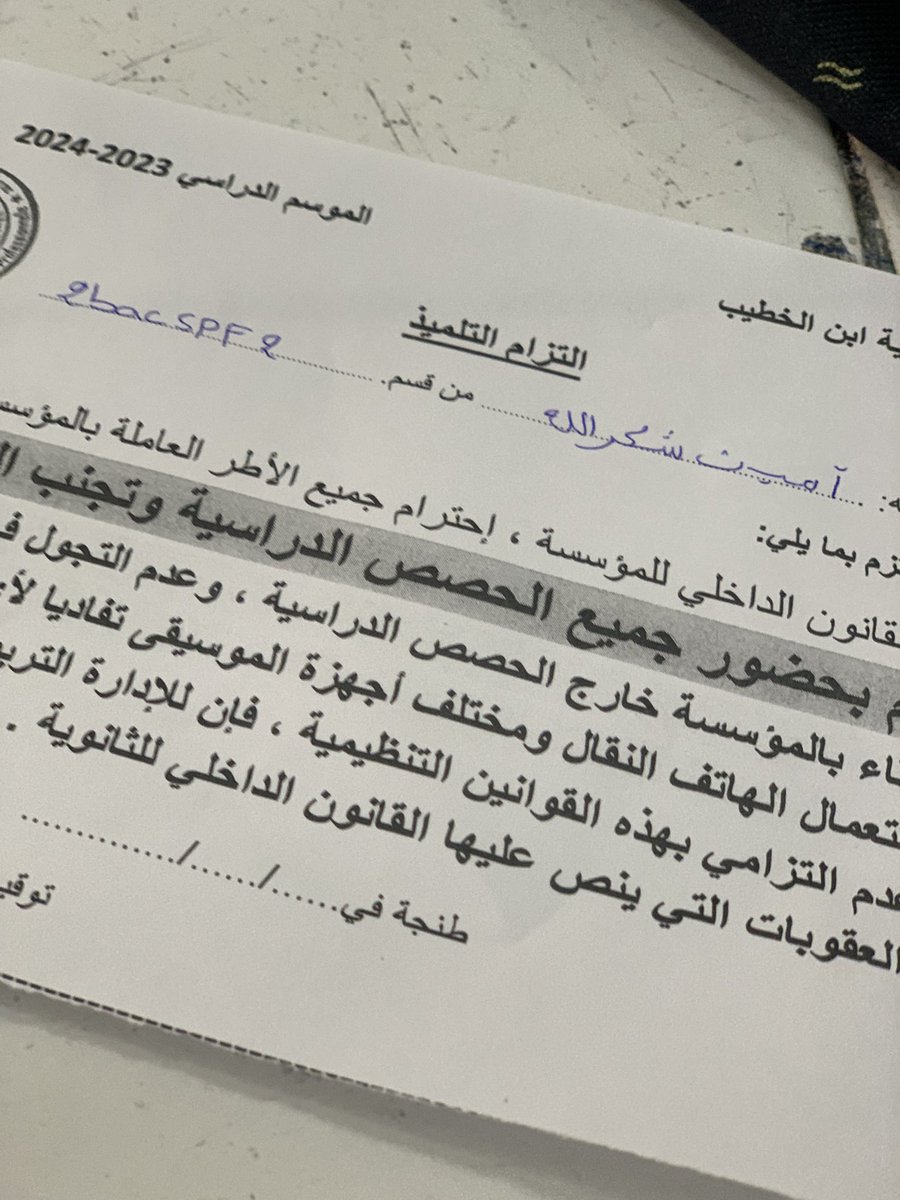 الموسم الدراسي 2023-2024
ابن الخطيب
التزام التلميذ
شكر الله من قسم. 2bac SPF 2
بما يلي:
الداخلي للمؤسسة ، إحترام جميع الأطر العاملة
بحضور جميع الحصص الدراسية وتجنب
بالمؤسسة خارج الحصص الدراسية ، وعدم التجول
الهاتف النقال ومختلف أجهزة الموسيقى تفاديا
التزامي بهذه القوانين التنظيمية ، فإن للإدارة
العقوبات التي ينص عليها القانون الداخلي للثانوية .
طنجة في....../....../............